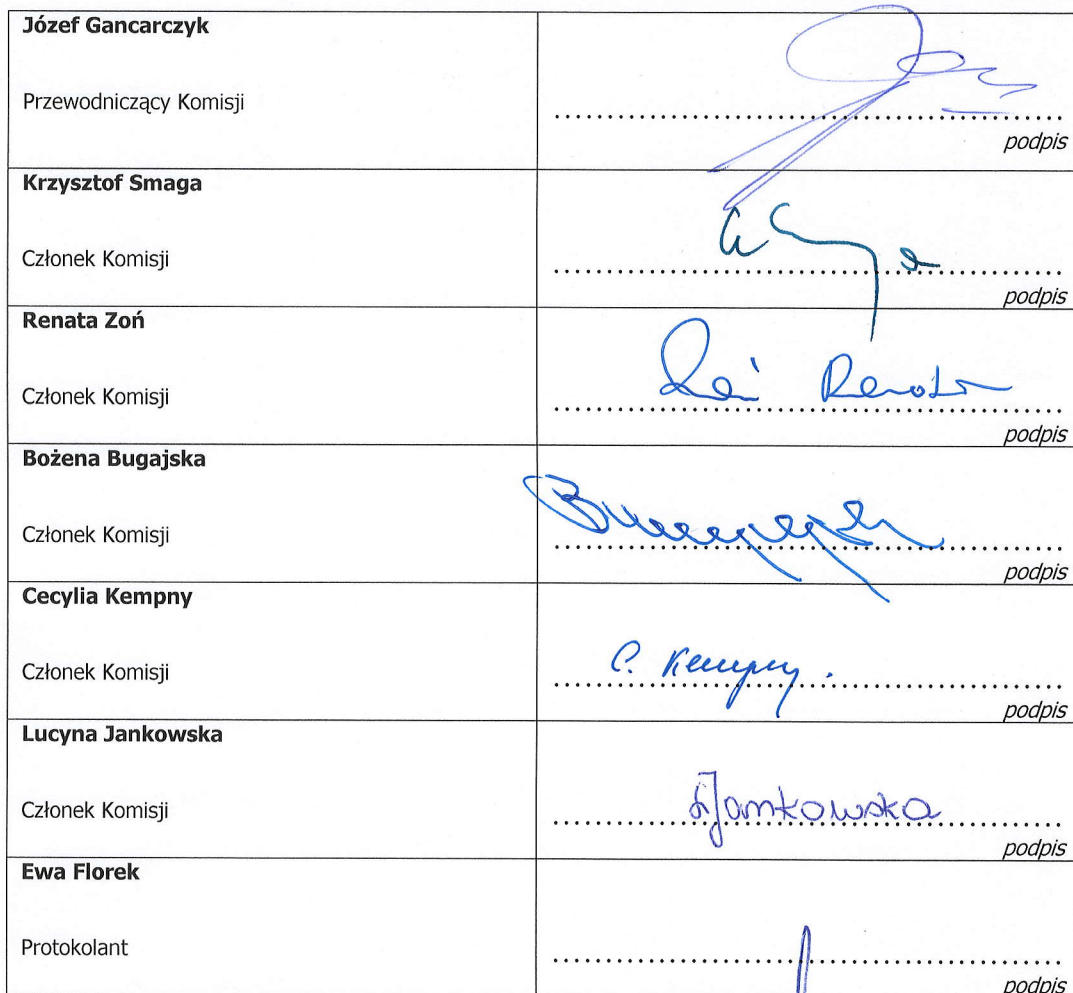 Józef Gancarczyk
Przewodniczący Komisji
podpis
Krzysztof Smaga
Członek Komisji
podpis
Renata Zoń
Członek Komisji
Zoń Renata
podpis
Bożena Bugajska
Członek Komisji
podpis
Cecylia Kempny
Członek Komisji
C. Kempny.
podpis
Lucyna Jankowska
Członek Komisji
LJankowska
podpis
Ewa Florek
Protokolant
podpis